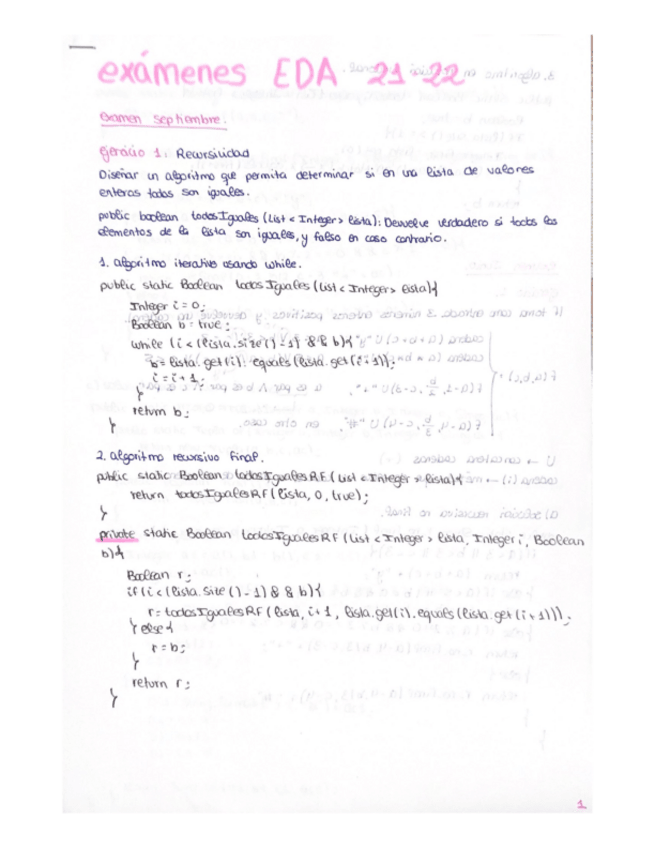 exámenes EDA 21 22
examen septiembre:
ejercicio 1: Recursividad
Diseñar un algoritmo que permita determinar si en una lista de valores
enteros todos son iguales.
public boolean todosIguales (List < Integer > lista): Devuelve verdadero si todos los
elementos de la lista son iguales, y falso en caso contrario.
1. algoritmo iterativo usando while.
public static Boolean todosIguales (List < Integer > lista){
Integer i = 0;
Boolean b = true;
while (i < (lista.size() - 1) && b){
b = lista.get(i).equals(lista.get(i+1));
i = i + 1;
}
return b;
}
2. algoritmo recursivo final.
public static Boolean todosIgualesRF (List < Integer > lista){
return todosIgualesRF (lista, 0, true);
}
private static Boolean todosIgualesRF (List < Integer > lista, Integer i, Boolean
b){
Boolean r;
if (i < (lista.size() - 1) && b){
r = todosIgualesRF (lista, i+1, lista.get(i).equals(lista.get(i+1)));
} else {
r = b;
}
return r;
}
1